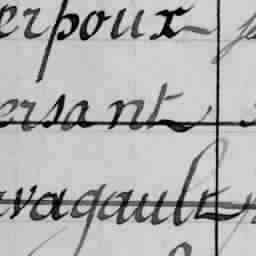 erpoux
ersant
avagault